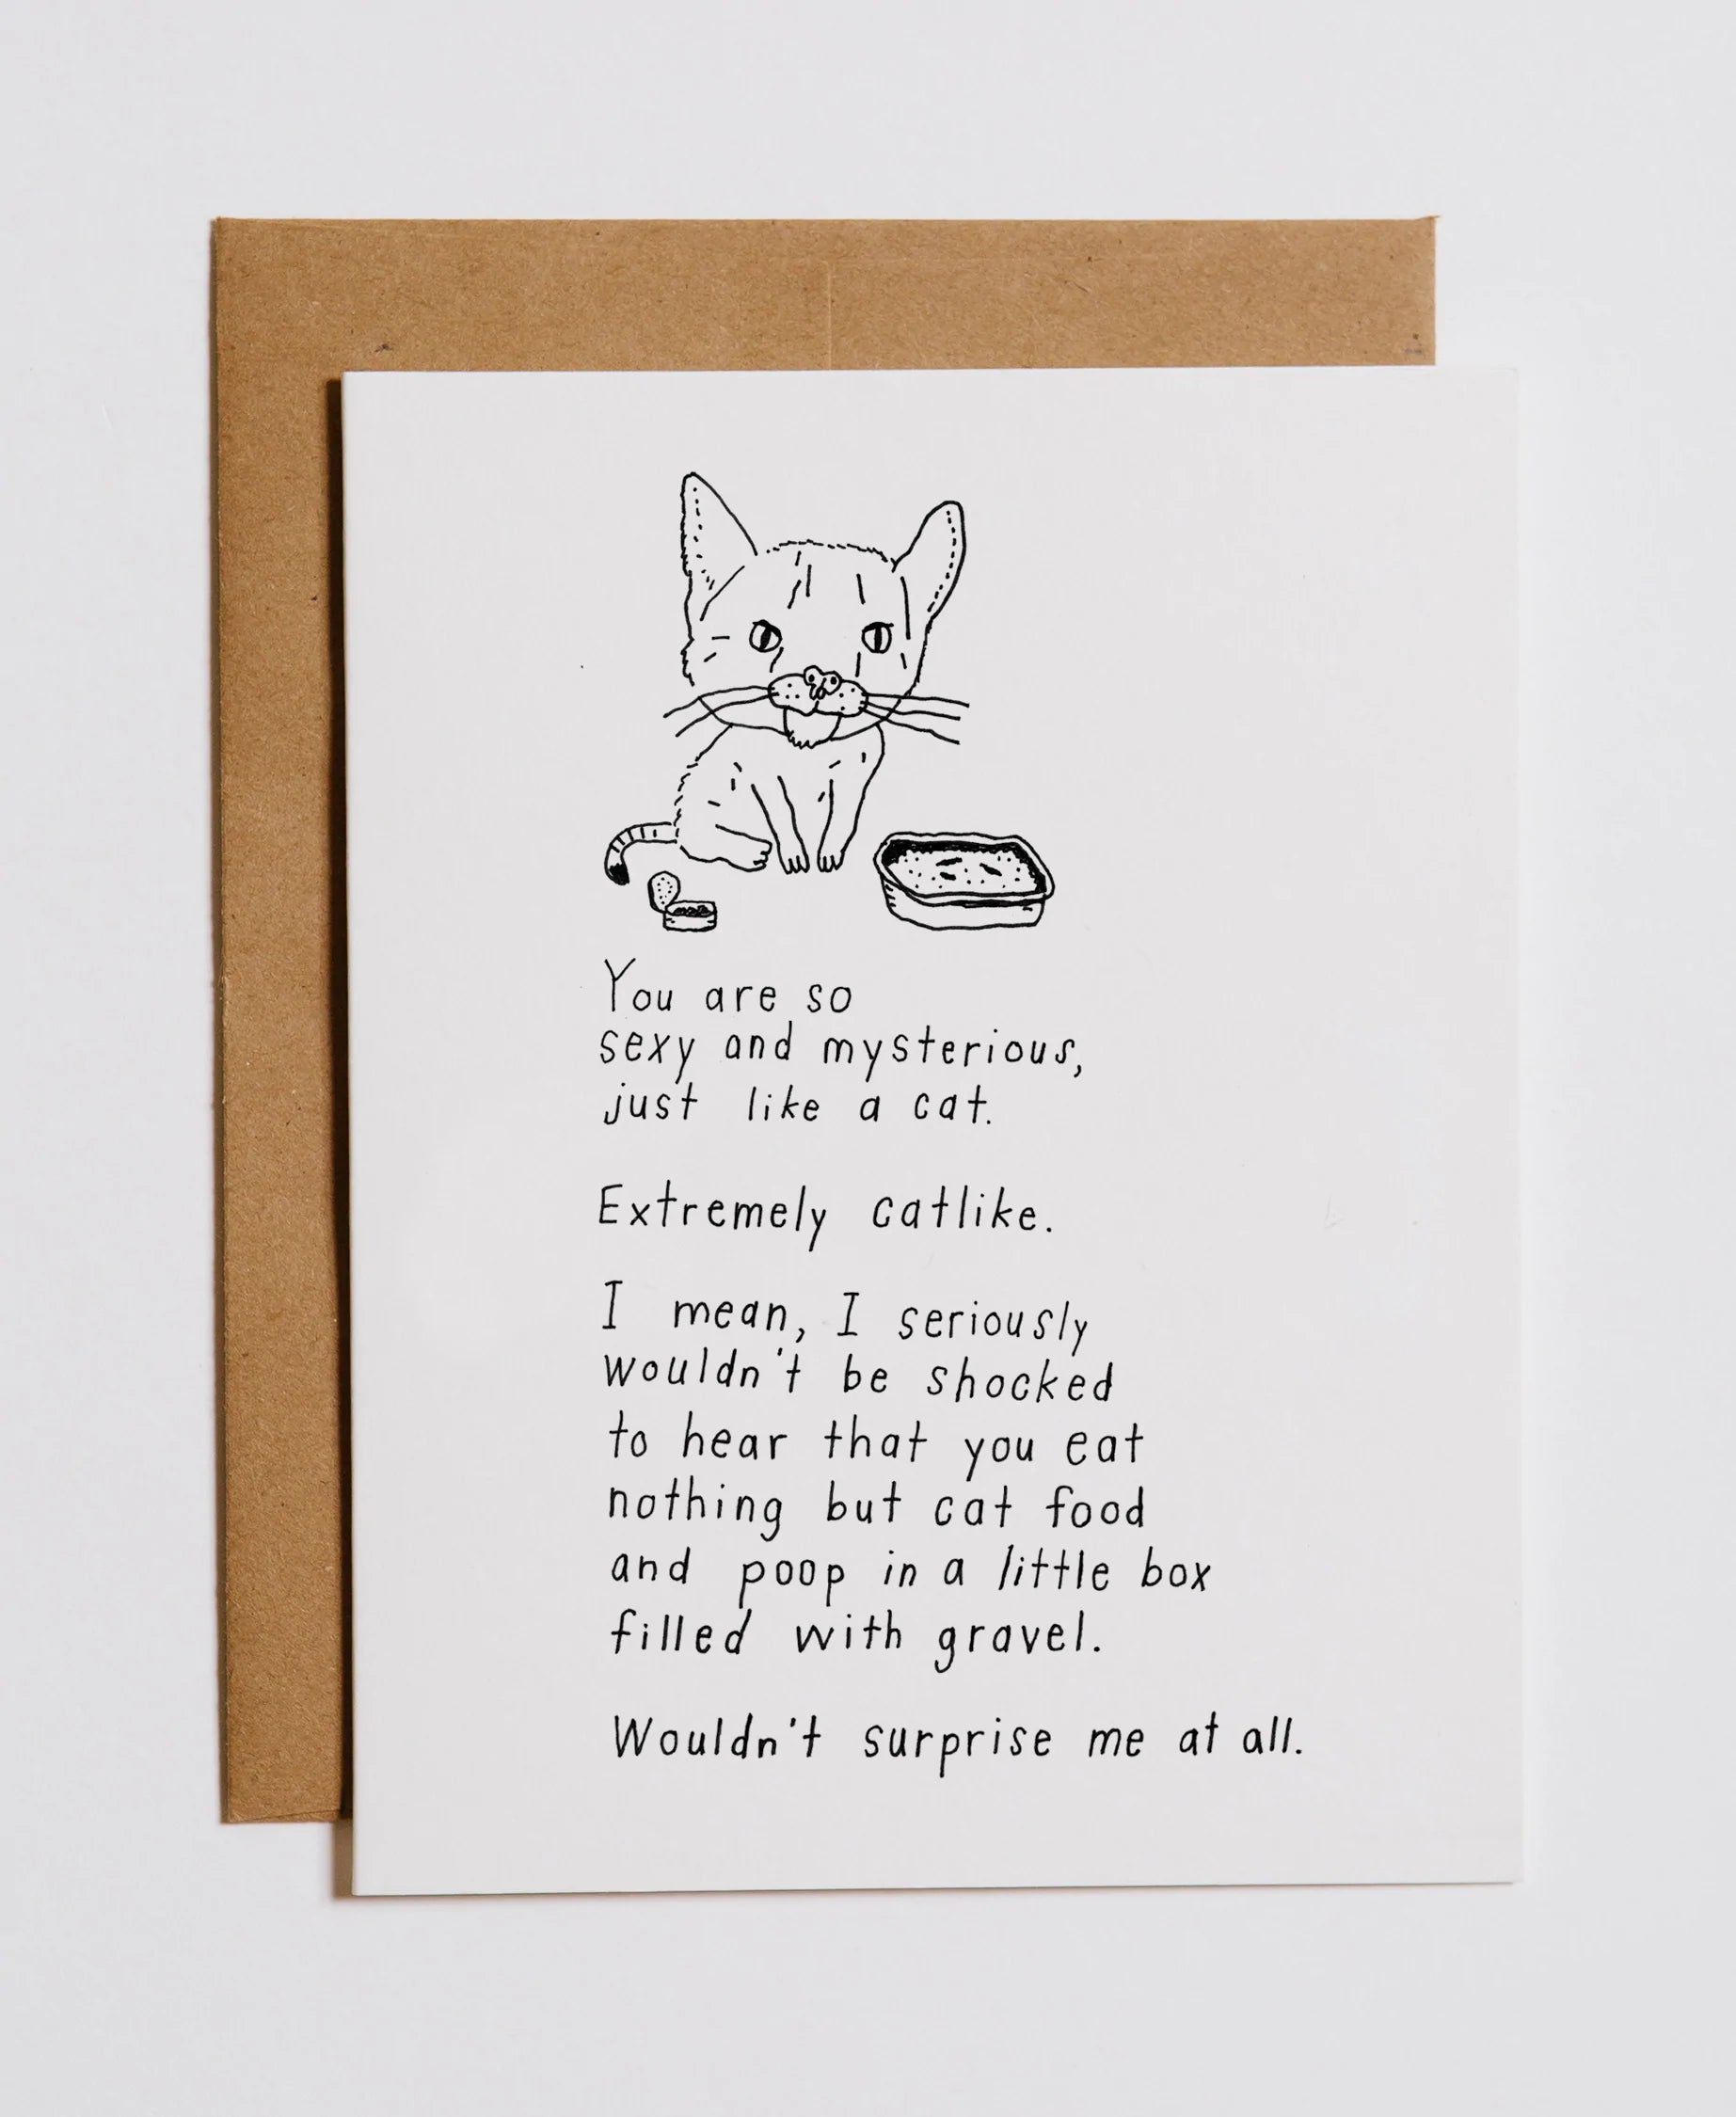 You are so
sexy and mysterious,
just like a cat.
Extremely catlike.
I mean, I seriously
wouldn't be shocked
to hear that you eat
nothing but cat food
and poop in a little box
filled with gravel.
Wouldn't surprise me at all.